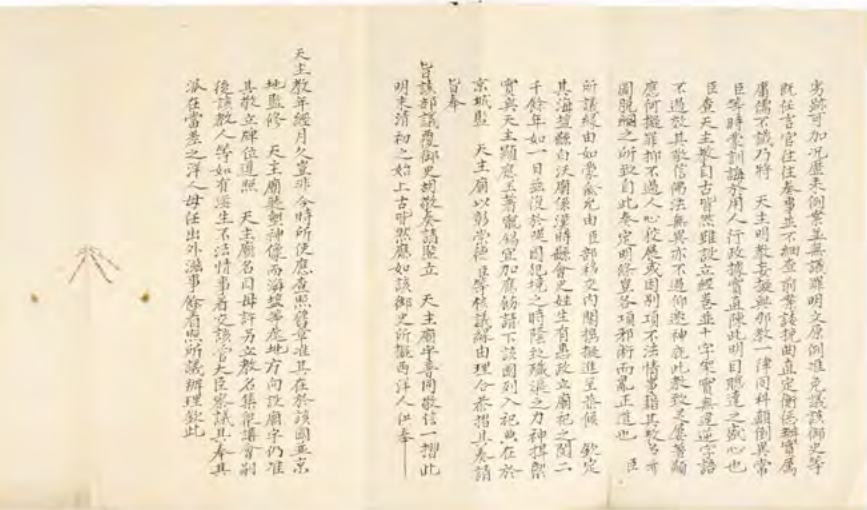 劣跡可加況歷來例案並無議罪明文原例准免議該御史等
既任言官往往奏事並不細查前案誤抗曲直定衡係實屬
庸儒不識乃將 天主明教妄擬與邪教一律同科顛倒異常
臣等時蒙訓誨於用人行政據實直陳此明目聰達之盛心也
臣查天主教自古皆然雖設立經卷並十字架實無違逆字語
不過設其敬信佛法無異亦不過仰邀神庇此教致靈屢著顯
應何擬罪抑不過人心狡展或因別項不法情事藉其教名亦
圖脫網之所致自此奏定明條皇各項邪術而亂正道也 臣
所議緣由如蒙俞允由臣部移交內閣撰擬進呈恭候 欽定
其海塩縣白沃廟係漢時縣會史姓生有惠政立廟祀之閱二
千餘年如一日並沒於逆國犯境之時陰致殲滅之力神捍禦
實與天主顯應互著寵錫宜加應飭請下該國列入祀典在於
京城監 天主廟以彰崇德 臣等核議緣由理合恭摺具奏請
旨奉
旨該部議覆御史胡敬奏請監立 天主廟宇普同敬信一摺此
明末清初之始上古皆然應如該御史所擬西洋人供奉
天主教年經月久豈非今時所使應查照舊章准其在於該國並京
地監修 天主廟聽塑神像而游壇等處地方向設廟宇仍准
其敬立牌位遵照 天主廟名目毋許另立教名集能講會嗣
後該教人等如有滋生不法情事着交該管大臣察議具奉其
派在當差之洋人毋任出外滋事餘着照所議辦理欽此